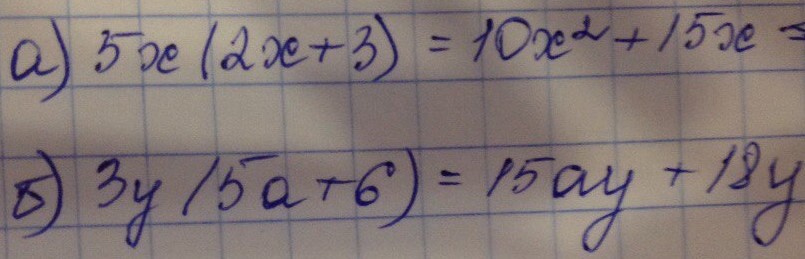 а) 5x(2x+3) = 10x² + 15x =
б) 3y(5a+6) = 15ay + 18y